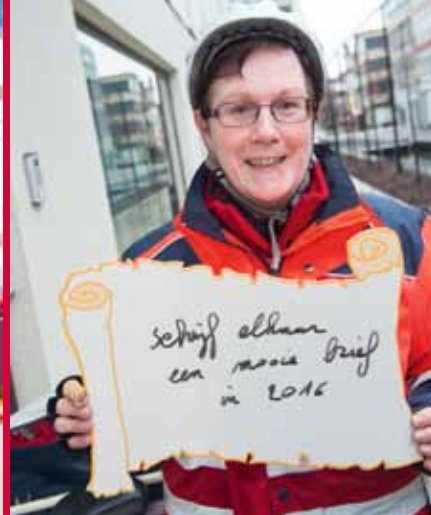 schrijf elkaar
een mooie brief
in 2016